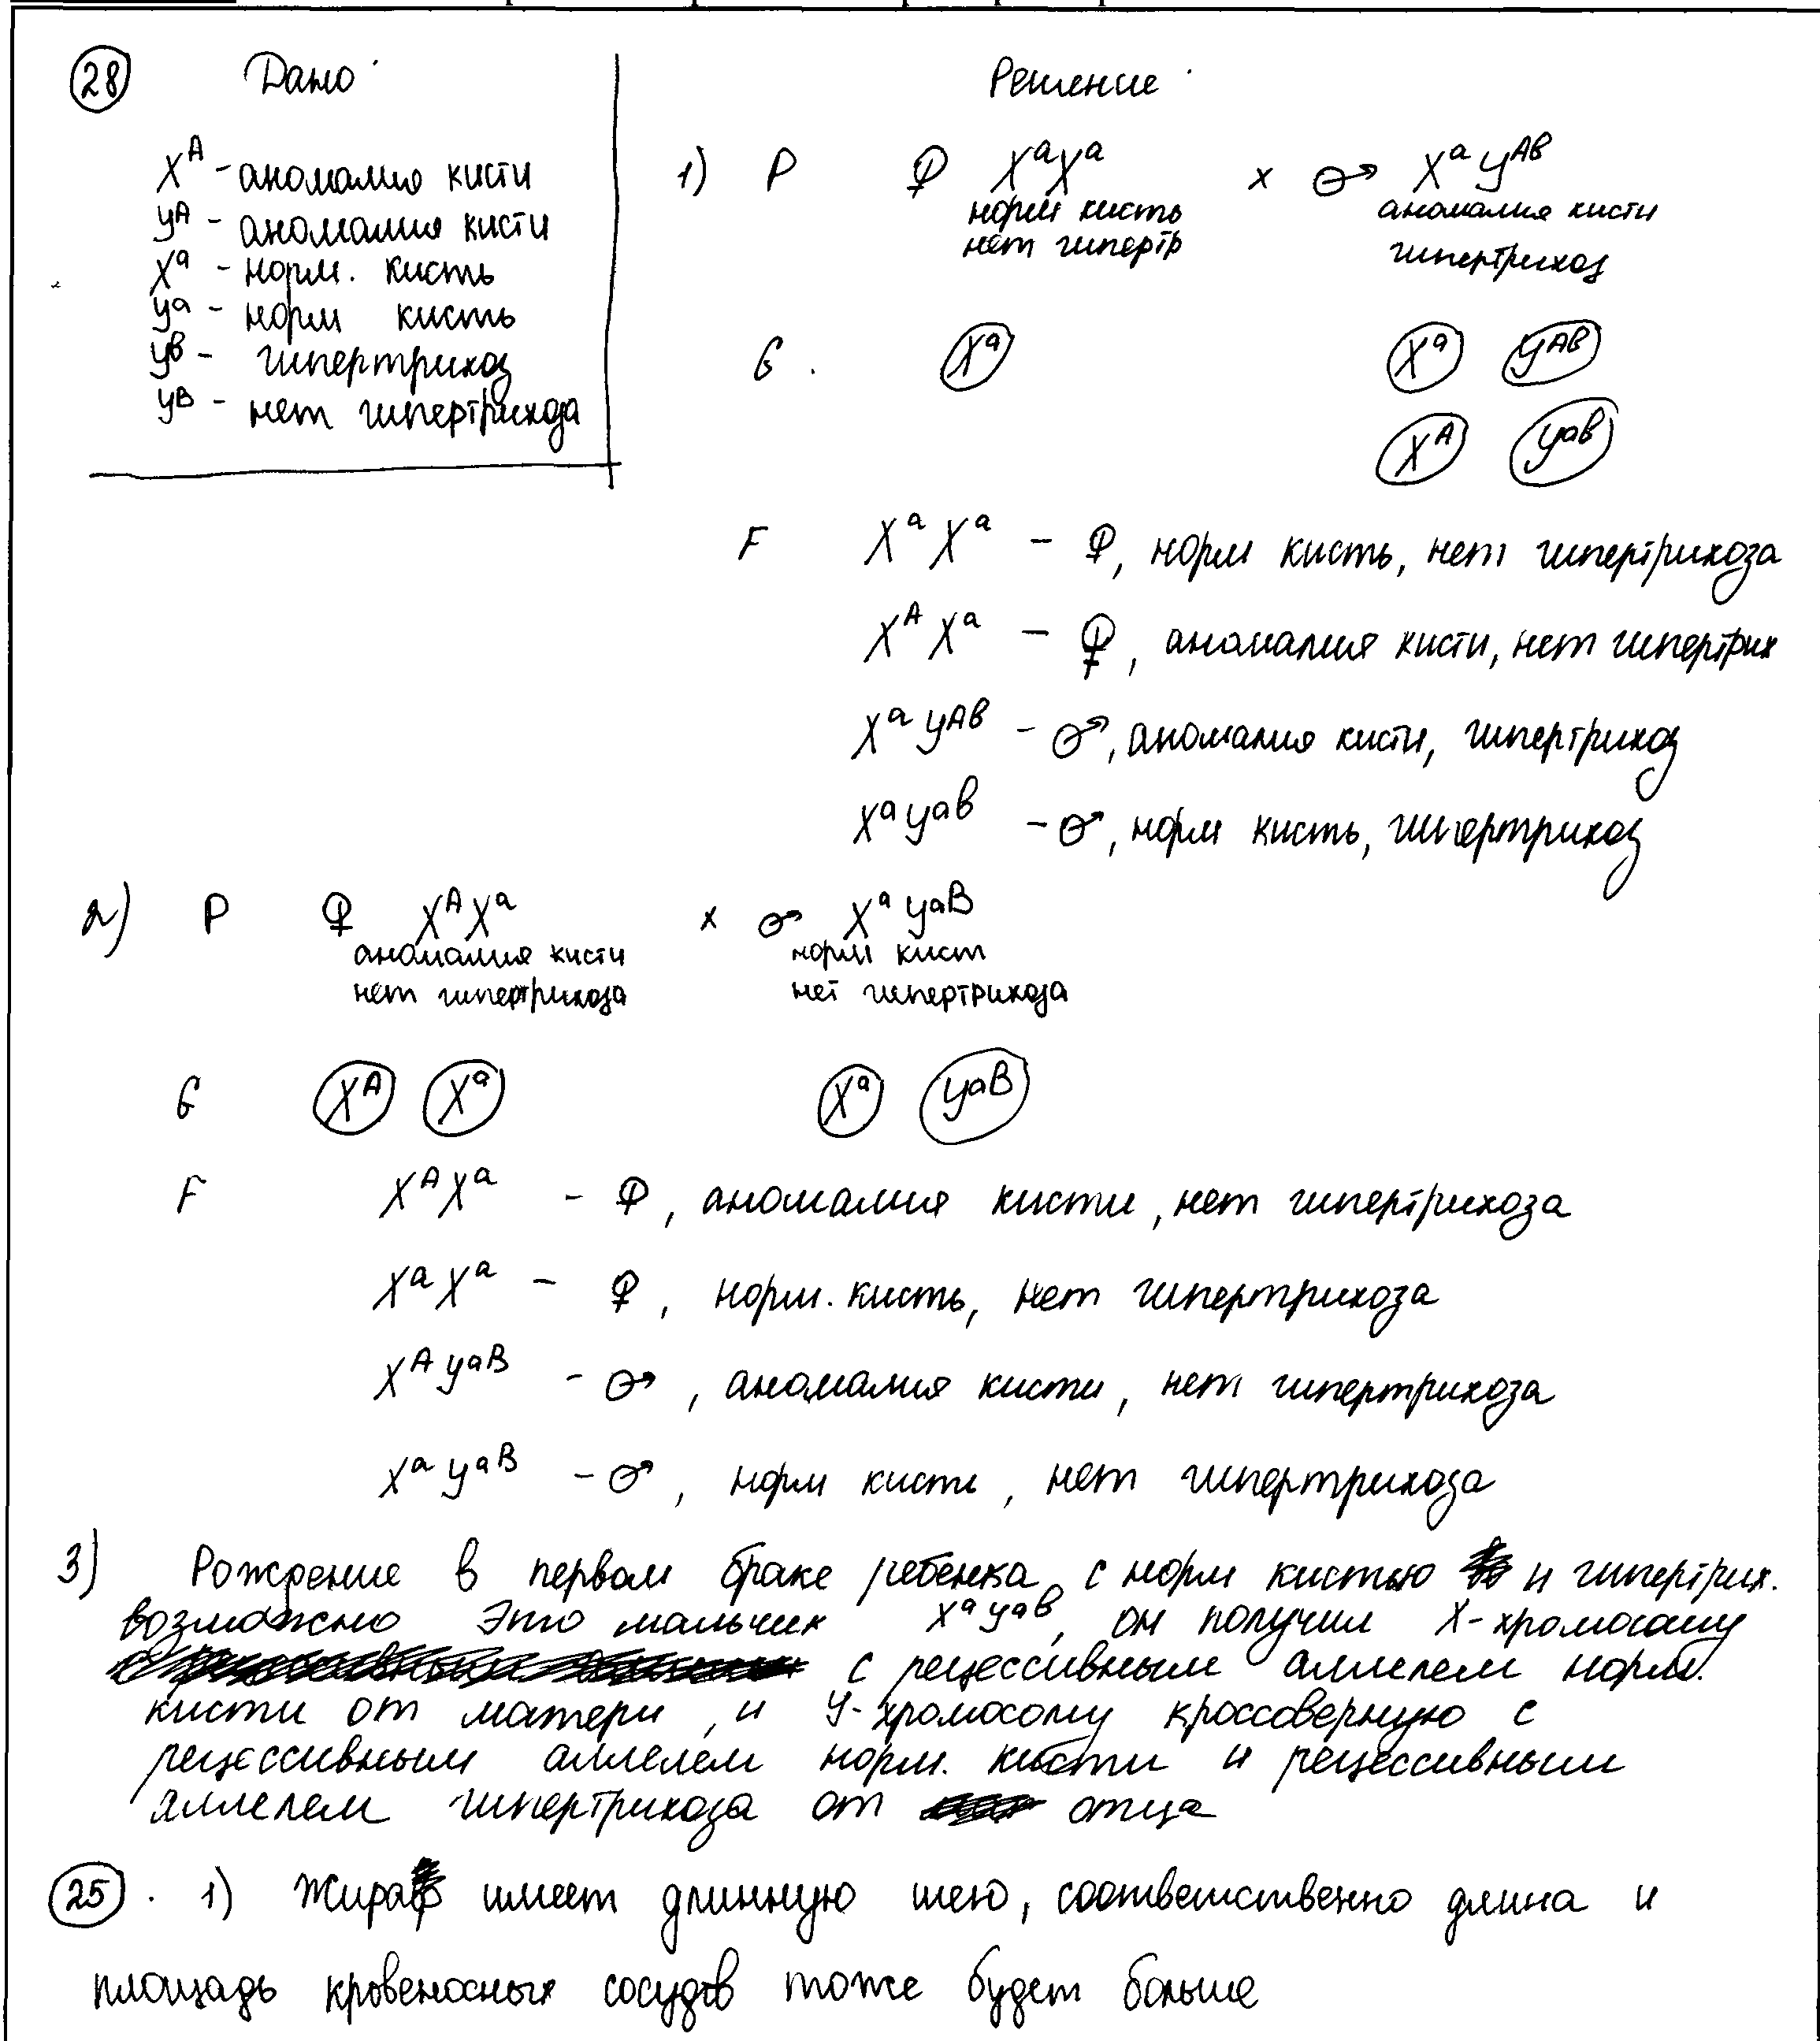 28 Дано Решение
X^A - аномалия кисти
y^A - аномалия кисти
X^a - норм. кисть
y^a - норм кисть
y^b - гипертрихоз
y^B - нет гипертрихоза
1) P ♀ X^a X^a x ♂ X^a y^Ab
норм кисть аномалия кисти
нет гипертр гипертрихоз
G. X^a X^a y^Ab
X^A y^ab
F X^a X^a - ♀, норм кисть, нет гипертрихоза
X^A X^a - ♀, аномалия кисти, нет гипертрих
X^a y^Ab - ♂, аномалия кисти, гипертрихоз
X^a y^ab - ♂, норм кисть, гипертрихоз
2) P ♀ X^A X^a x ♂ X^a y^aB
аномалия кисти норм кист
нет гипертрихоза нет гипертрихоза
G X^A X^a X^a y^aB
F X^A X^a - ♀, аномалия кисти, нет гипертрихоза
X^a X^a - ♀, норм. кисть, нет гипертрихоза
X^A y^aB - ♂, аномалия кисти, нет гипертрихоза
X^a y^aB - ♂, норм кисть, нет гипертрихоза
3) Рождение в первом браке ребенка с норм кистью и гипертрих.
возможно Это мальчик X^a y^ab, он получил X-хромосому
с рецессивным аллелем норм.
кисти от матери, и y-хромосому кроссоверную с
рецессивным аллелем норм. кисти и рецессивным
аллелем гипертрихоза от отца
25. 1) Жираф имеет длинную шею, соответственно длина и
площадь кровеносных сосудов тоже будет больше